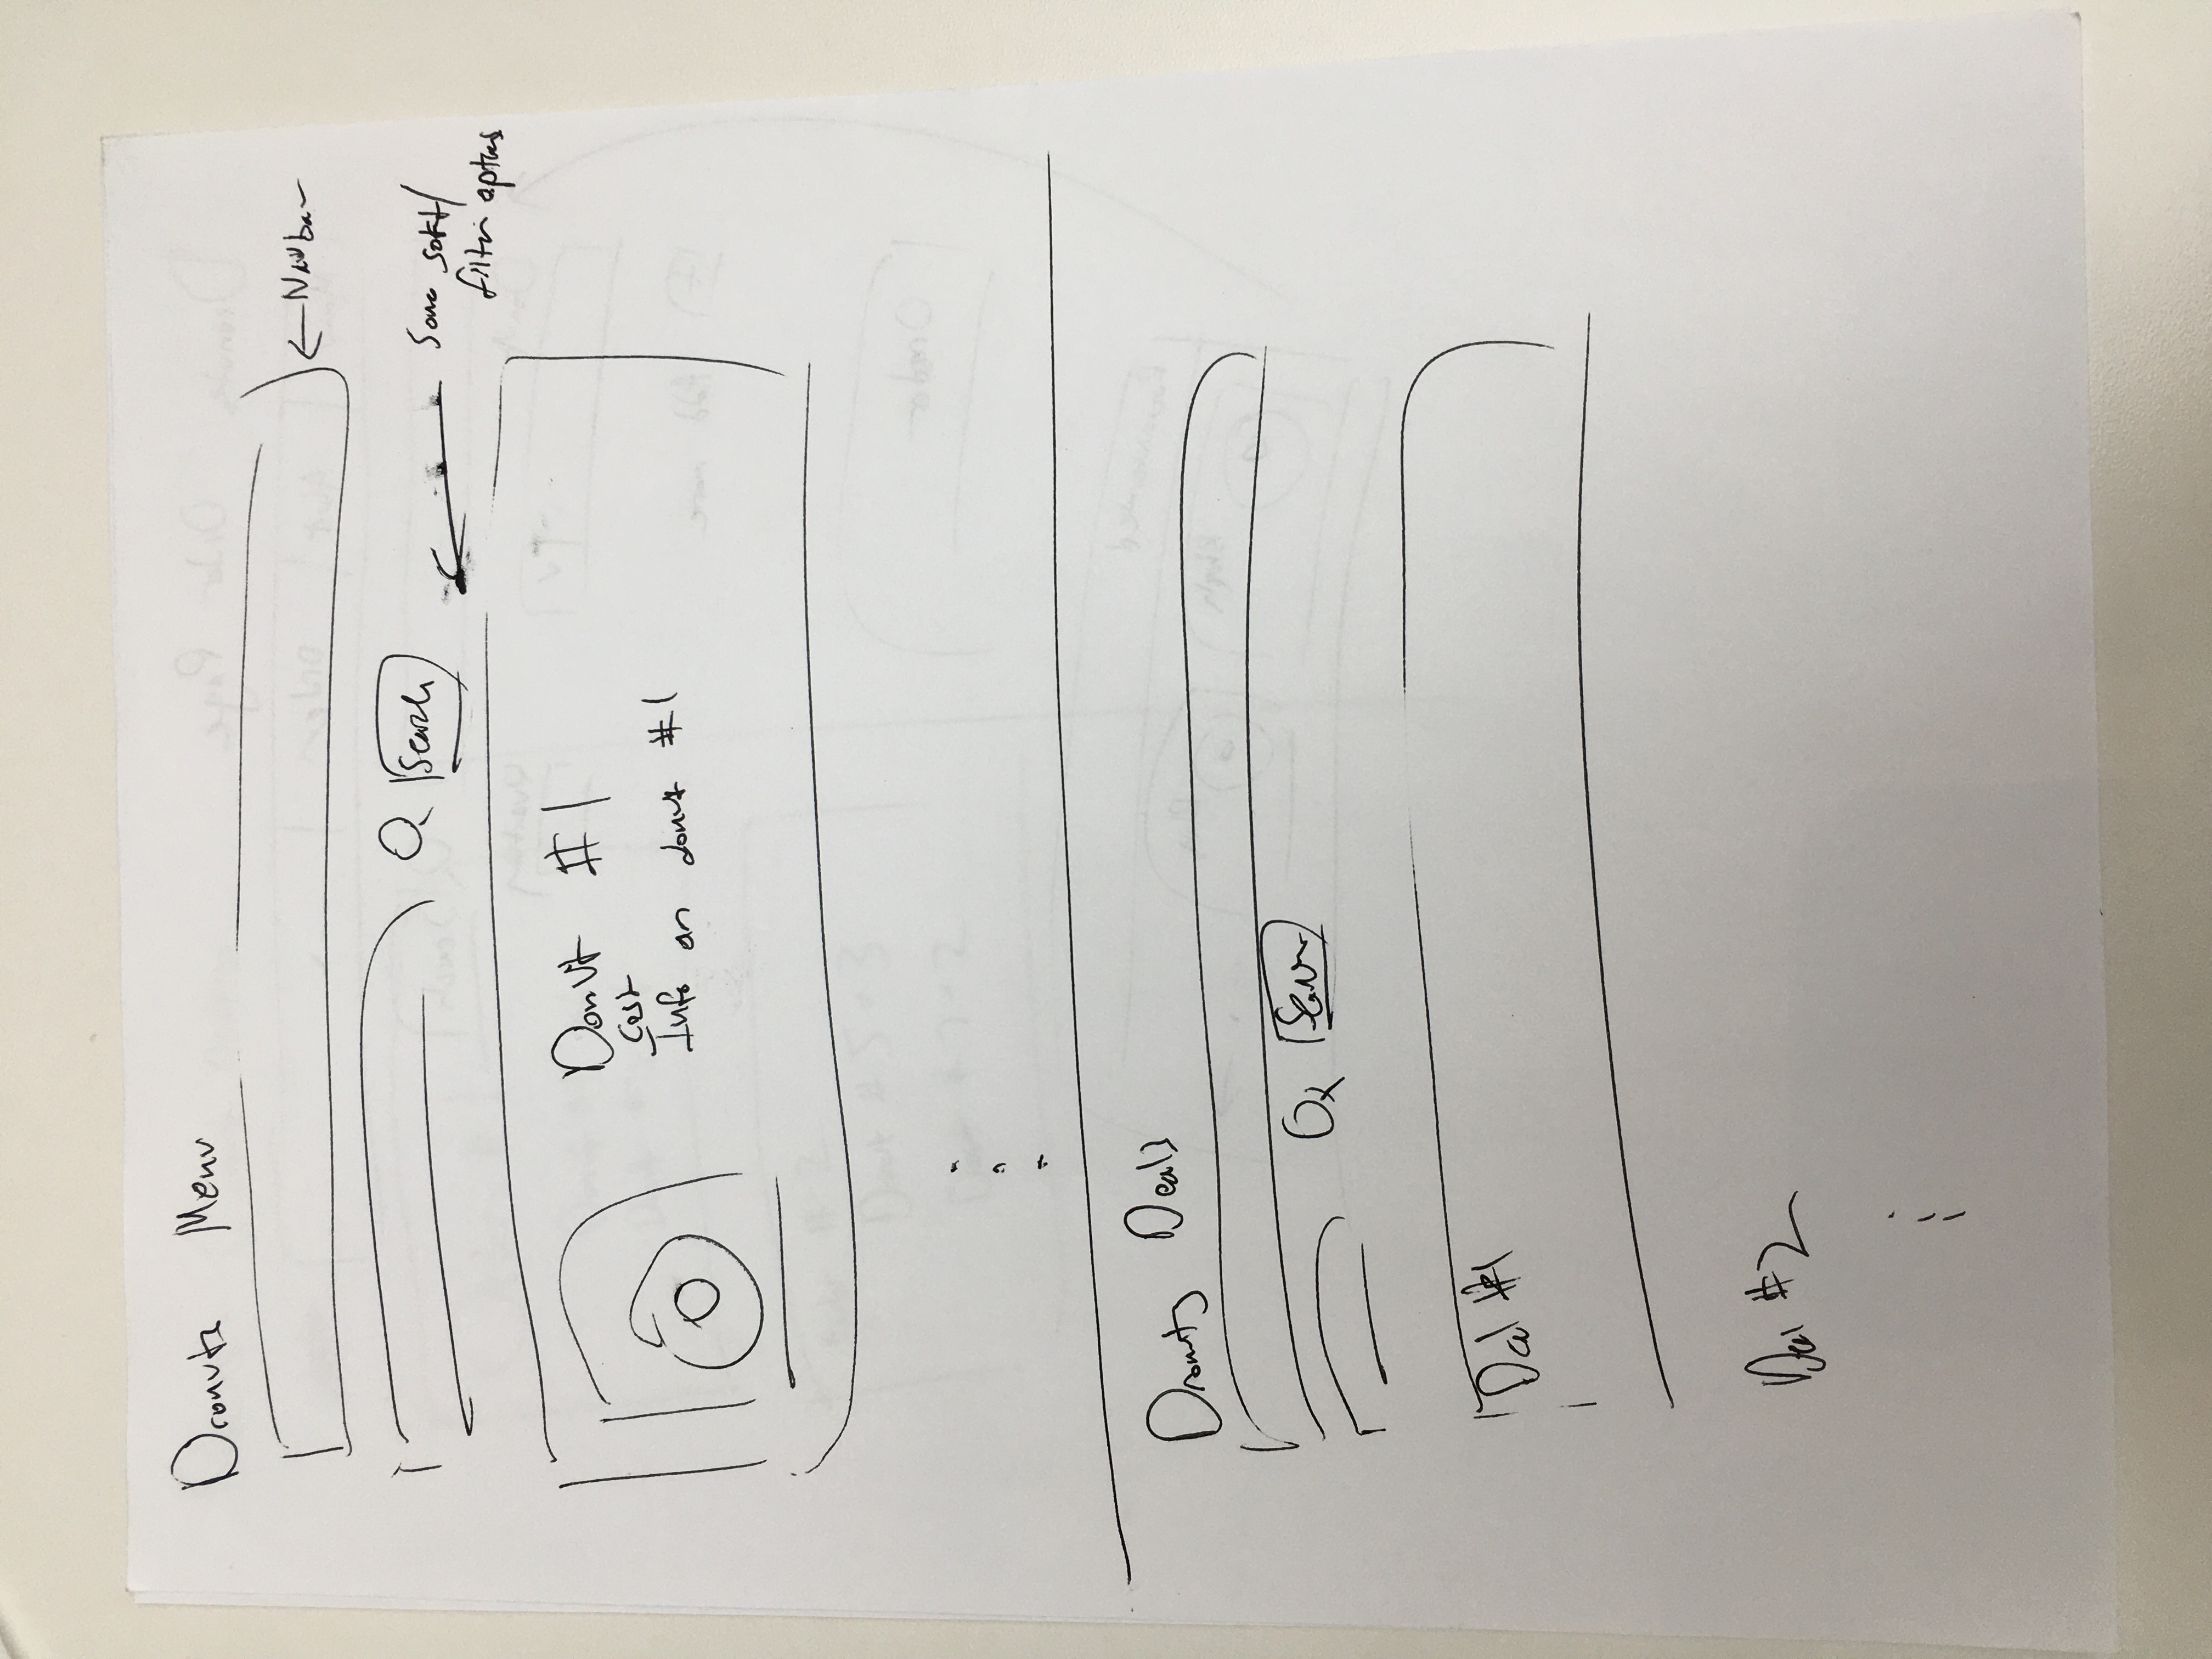 Dronuts Menu
← Navbar
Search
Some sort/
filter options
Donut #1
Cost
Info on donut #1
Dronuts Deals
Search
Deal #1
Deal #2